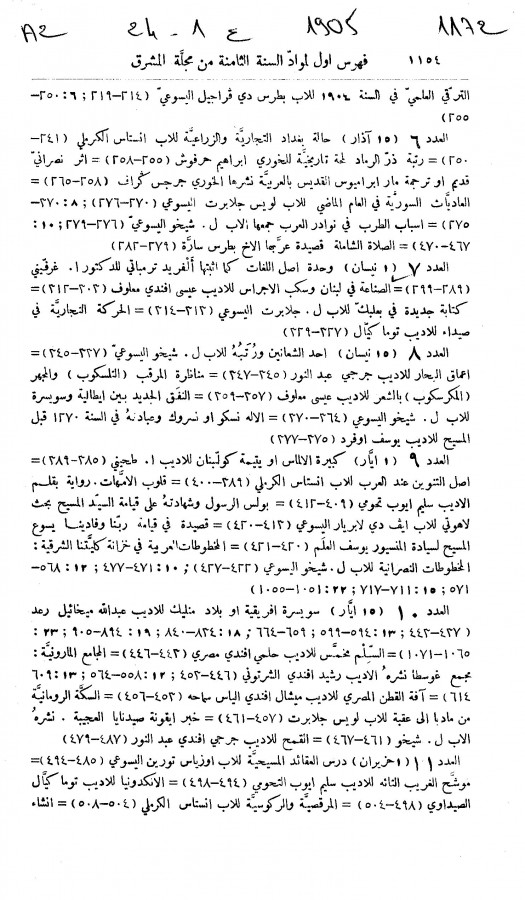 A2 24-8 ع 1905 1172
١١٥٤ فهرس اول لموادّ السنة الثامنة من مجلّة المشرق
الترقي العلميّ في السنة ١٩٠٤ للاب بطرس دي فراجيل اليسوعيّ (٢١٤–٢١٩; ٦: ٢٥٠–
٢٥٥)
العدد ٦ (١٥ آذار) حالة بغداد التجاريَّة والزراعيَّة للاب انستاس الكرملي (٢٤١–
٢٥٠) = رتبة ذرّ الرماد لمحة تاريخيَّة للخوري ابراهيم حرفوش (٢٥٥–٢٥٨) = اثر نصرانيّ
قديم او ترجمة مار ابراميوس القديس بالعربية نشرها الخوري جرجس كُراف (٢٥٨–٢٦٥) =
العاديَّات السورية في العام الماضي للاب لويس جلابرت اليسوعي (٢٧٠–٢٧٦; ٨: ٢٧٠–
٢٧٥) = اسباب الطرب في نوادر العرب جمعها الاب ل. شيخو اليسوعيّ (٢٧٦–٢٧٩; ١٠:
٤٦٧–٤٧٠) = الصلاة الشاملة قصيدة عرَّبها الاخ بطرس سارَّة (٢٧٩–٢٨٢)
العدد ٧ (١ نيسان) وحدة اصل اللغات كما اثبتها أَلفريد ترمباتي للدكتور ا. غرفيني
(٢٨٩–٢٩٩) = الصناعة في لبنان وسكب الاجراس للاديب عيسى افندي معلوف (٣٠٢–٣١٢) =
كتابة جديدة في بعلبك للاب ل. جلابرت اليسوعي (٣١٢–٣١٤) = الحركة التجاريَّة في
صيداء للاديب توما كيَّال (٣٢٧–٣٢٩)
العدد ٨ (١٥ نيسان) احد الشعانين ورُتَبهُ للاب ل. شيخو اليسوعيّ (٣٣٧–٣٤٥) =
اعماق البحار للاديب جرجي عبد النور (٣٤٥–٣٤٧) = مناظرة المرقب (التلسكوب) والمجهر
(المكرسكوب) بالشعر للاديب عيسى معلوف (٣٥٧–٣٥٩) = النفق الجديد بين ايطالية وسويسرة
للاب ل. شيخو اليسوعي (٣٦٤–٣٧٠) = الاله نسكو او نسروك وعبادتهُ في السنة ١٢٧٠ قبل
المسيح للاديب يوسف اوفرد (٣٧٥–٣٧٧)
العدد ٩ (١ ايَّار) كبيرة الالماس او يتيمة كولّينان للاديب ا. طحيني (٣٨٥–٣٨٩) =
اصل التنوين عند العرب للاب انستاس الكرملي (٣٨٩–٤٠٠) = قلوب الامَّهات. رواية بقلم
الاديب سليم ايوب تحومي (٤٠٩–٤١٢) = بولس الرسول وشهادتهُ على قيامة السيّد المسيح بحث
لاهوتي للاب ايف دي لابريار اليسوعي (٤١٢–٤٢٠) = قصيدة في قيامة ربّنا وفادينا يسوع
المسيح لسيادة المنسيور يوسف العلَم (٤٢٠–٤٢١) = المخطوطات العربية في خزانة كلّيتنا الشرقية:
المخطوطات النصرانية للاب ل. شيخو اليسوعي (٤٢٢–٤٢٧; ١٠: ٤٧١–٤٧٧; ١٢: ٥٦٨–
٥٧١; ١٥: ٧١١–٧١٧; ٢٢: ١٠٥١–١٠٥٥)
العدد ١٠ (١٥ ايَّار) سويسرة افريقية او بلاد منليك للاديب عبدالله ميخائيل رعد
(٤٣٧–٤٤٢; ١٣: ٥٩٤–٥٩٩; ٦٥٩–٦٦٤; ١٨: ٨٣٤–٨٤٠; ١٩: ٨٩٤–٩٠٥; ٢٣:
١٠٦٥–١٠٧١) = السُلَّم مخمَّس للاديب حلمي افندي مصري (٤٤٢–٤٤٦) = المجامع المارونيَّة:
مجمع غوسطا نشرهُ الاديب رشيد افندي الشرتوني (٤٤٦–٤٥٢; ١٢: ٥٥٨–٥٦٤; ١٣: ٦٠٩–
٦١٤) = آفة القطن المصري للاديب ميشال افندي الياس سماحه (٤٥٢–٤٥٦) = السكّة الرومانيَّة
من مادبا الى عقبة للاب لويس جلابرت (٤٥٧–٤٦١) = خبر ايقونة صيدنايا العجيبة. نشرهُ
الاب ل. شيخو (٤٦١–٤٦٧) = القمح للاديب جرجي افندي عبد النور (٤٧٩–٤٨٧)
العدد ١١ (١ حزيران) درس العقائد المسيحيَّة للاب اوزياس تورين اليسوعي (٤٨٥–٤٩٤) =
موشَّح الغريب التائه للاديب سليم ايوب التحومي (٤٩٤–٤٩٨) = الانكدونيا للاديب توما كيَّال
الصيداوي (٤٩٨–٥٠٤) = المرقصيَّة والركوسيَّة للاب انستاس الكرملي (٥٠٤–٥٠٨) = انشاء